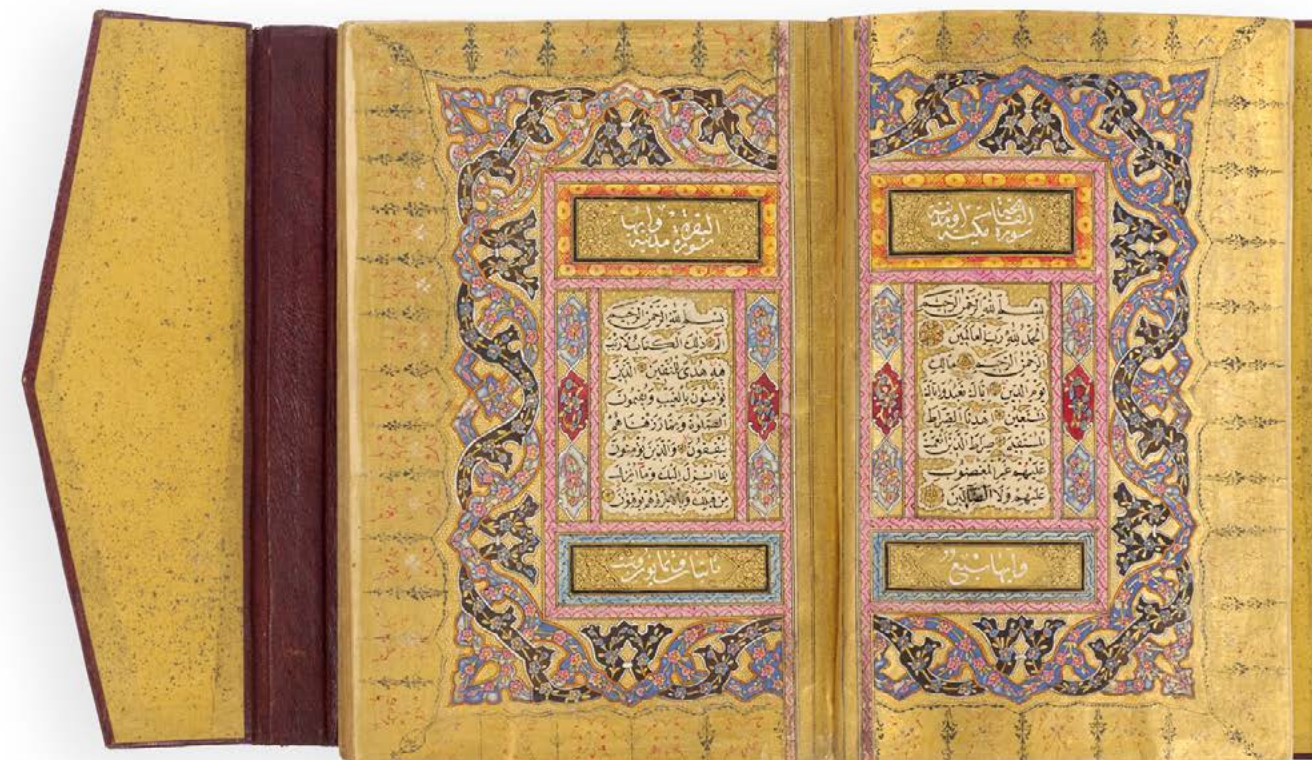 سورة الفاتحة مكية او مدنية
بِسْمِ اللّٰهِ الرَّحْمٰنِ الرَّحِيمِ
اَلْحَمْدُ لِلّٰهِ رَبِّ الْعَالَمِينَ
اَلرَّحْمٰنِ الرَّحِيمِ مَالِكِ
يَوْمِ الدِّينِ اِيَّاكَ نَعْبُدُ وَاِيَّاكَ
نَسْتَعِينُ اِهْدِنَا الصِّرَاطَ
الْمُسْتَقِيمَ صِرَاطَ الَّذِينَ اَنْعَمْتَ
عَلَيْهِمْ غَيْرِ الْمَغْضُوبِ
عَلَيْهِمْ وَلَا الضَّالِّينَ
وايها سبع
سورة البقرة مدنية وايها
بِسْمِ اللّٰهِ الرَّحْمٰنِ الرَّحِيمِ
الٓمٓ ذٰلِكَ الْكِتَابُ لَا رَيْبَ
فِيهِ هُدًى لِلْمُتَّقِينَ اَلَّذِينَ
يُؤْمِنُونَ بِالْغَيْبِ وَيُقِيمُونَ
الصَّلٰوةَ وَمِمَّا رَزَقْنَاهُمْ
يُنْفِقُونَ وَالَّذِينَ يُؤْمِنُونَ
بِمَا اُنْزِلَ اِلَيْكَ وَمَا اُنْزِلَ
مِنْ قَبْلِكَ وَبِالْاٰخِرَةِ هُمْ يُوقِنُونَ
مائتان وثمانون وست